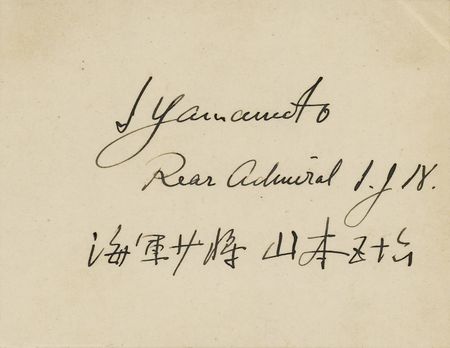 I Yamamoto
Rear Admiral I.J.N.
海軍少将 山本五十六